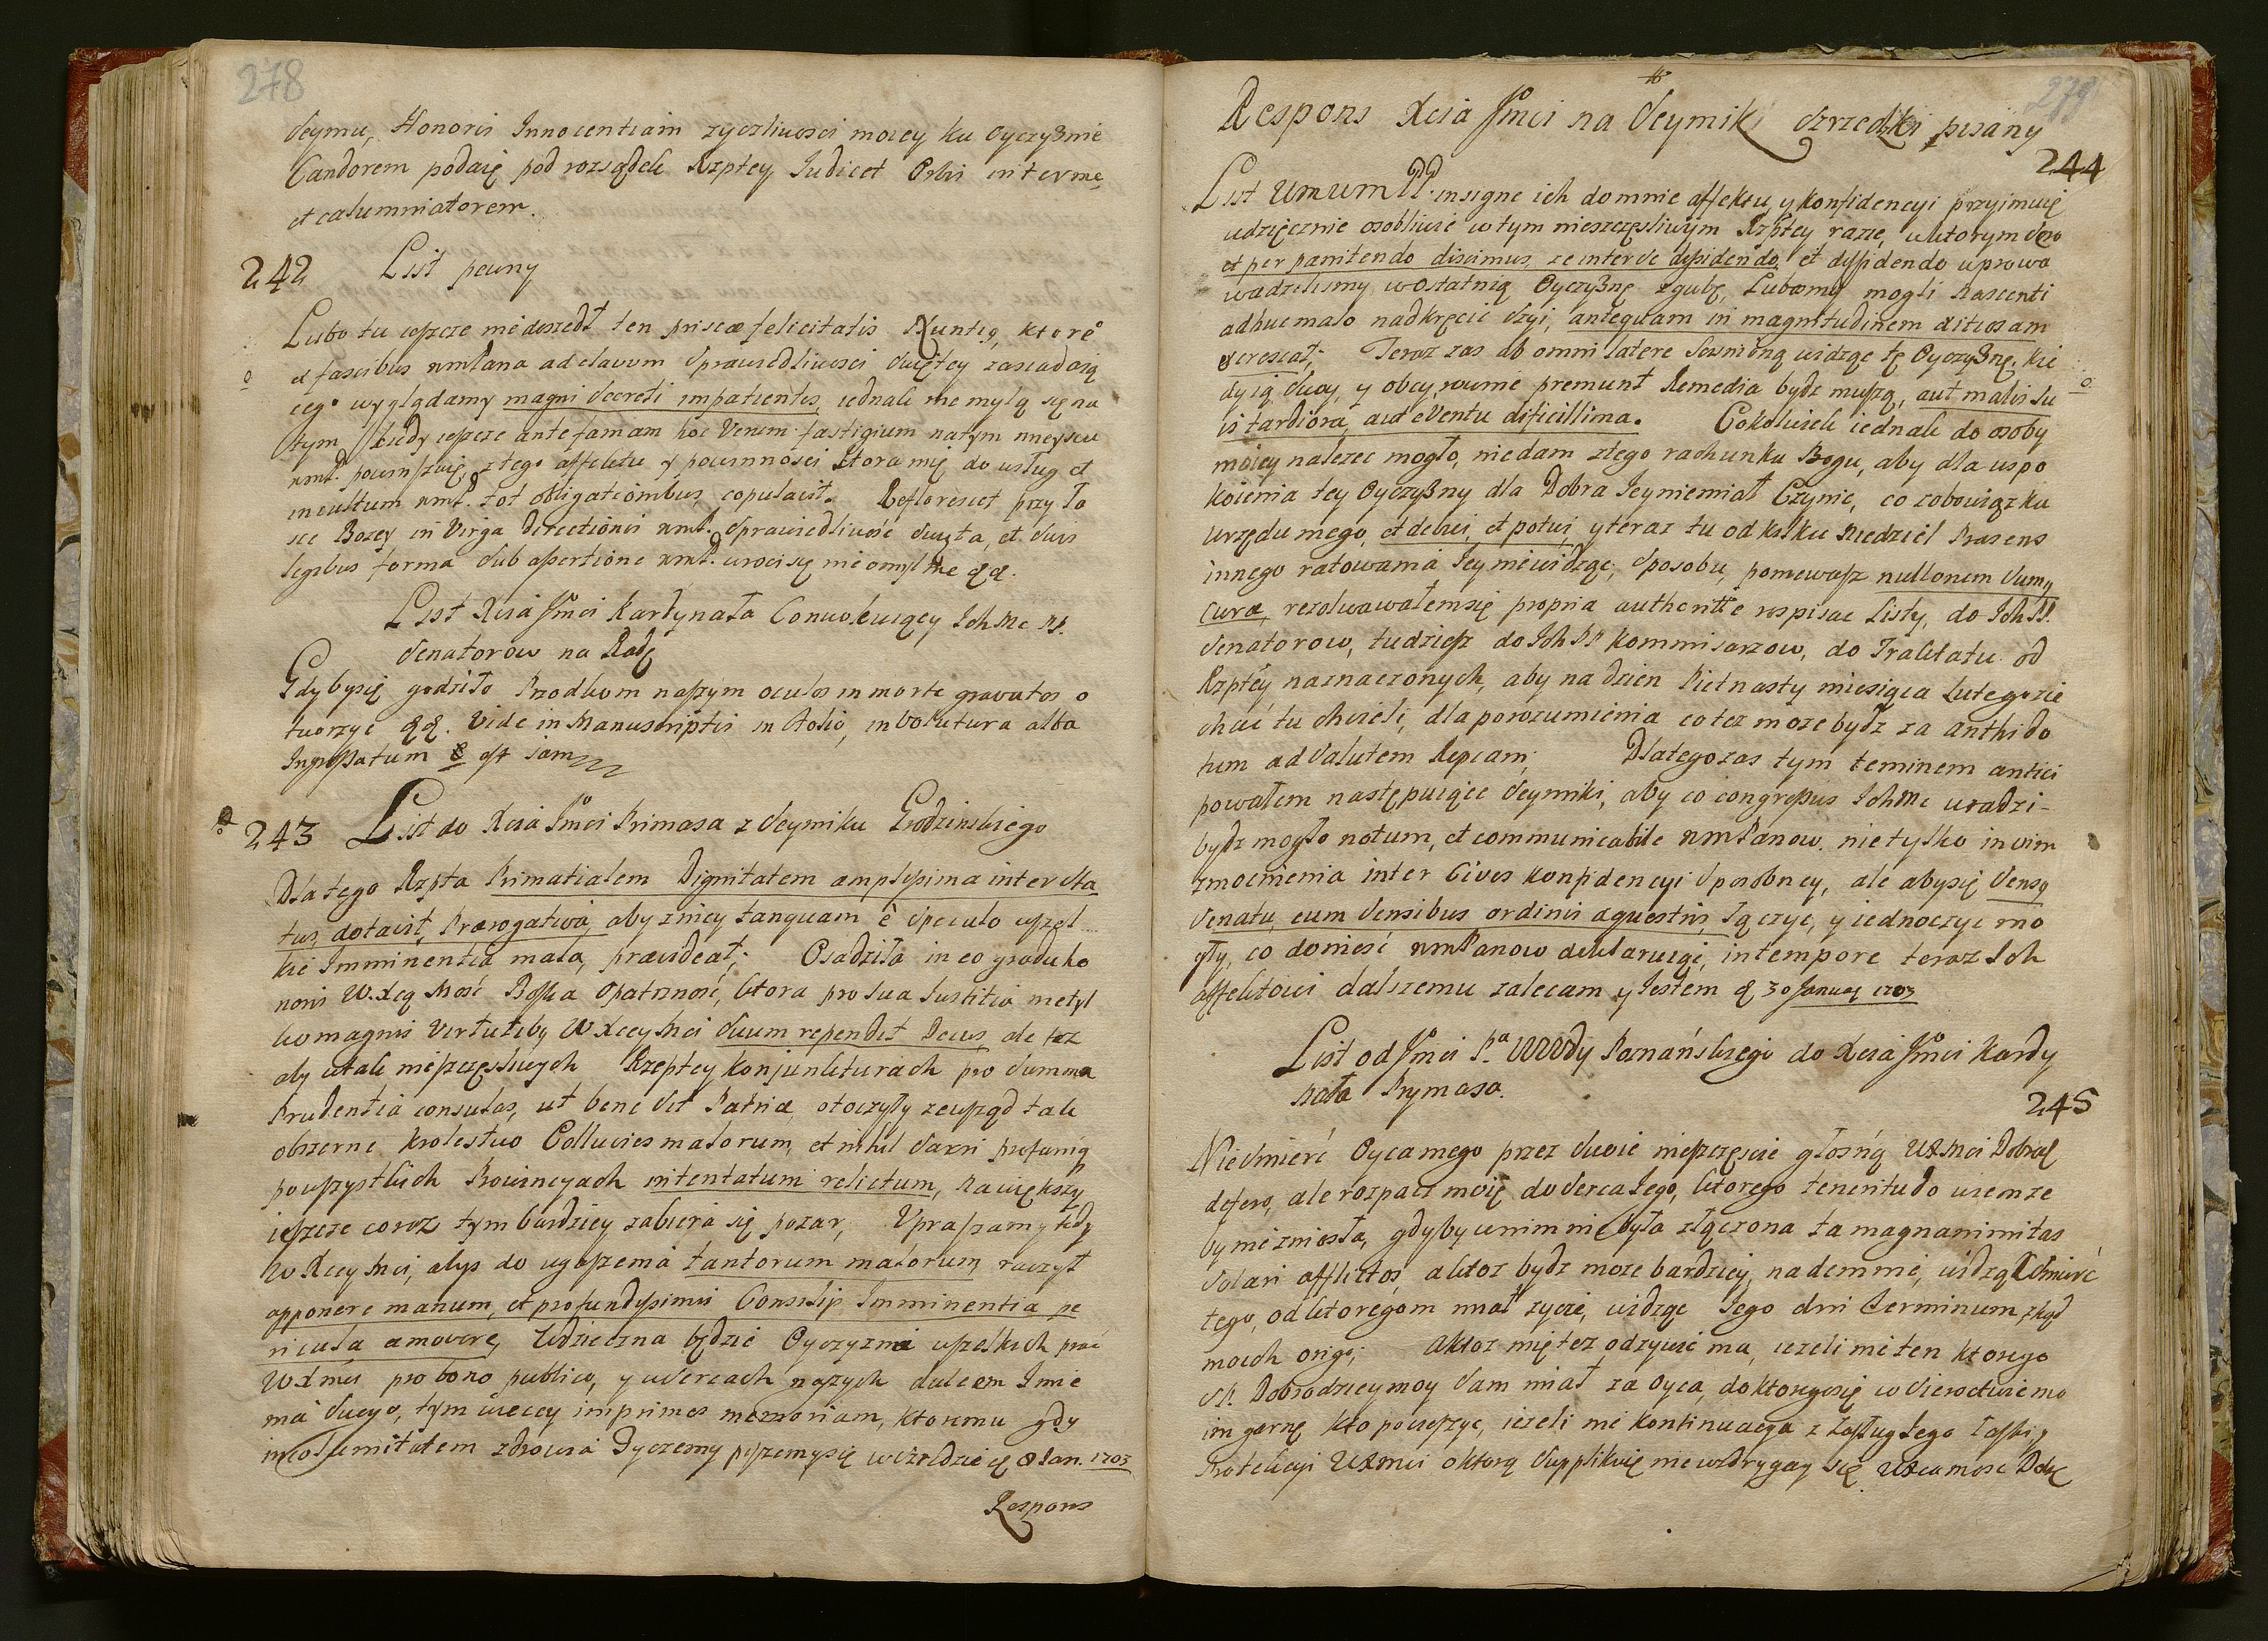 278
Seymu, Honoris Innocentiam zyczliwosci moiey ku Oyczyznie
Candorem podaię pod rozsądek Rzptey Iudicet Orbis inter me,
et calumniatorem.
242 List pewny
Lubo tu ieszcze nie doszedł ten priscæ felicitatis Nuntius, ktore
et fascibus wmPana ad clavum Sprawiedliwosci Swiętey zasiadaią
iego wyglądamy magni decreti impatientes, iednak nie mylą się na
tym kiedy ieszcze ante famam hoc Verum fastigium natym mieyscu
wmP. powinszuię, z tego affektu y powinnosci ktora mię do usług et
in cultum wmP. tot obligationibus copulavit. Reflorescet przy ła
sce Bozey in Virga directionis wmP. Sprawiedliwość Swięta, et suis
legibus forma sub assertione wmP. wroci się nie omylnie &&.
List Xcia Jmci Kardynała Conwokuiący Ich Mc PP.
Senatorow na Radę
Gdyby się godziło Przodkom naszym oculos in morte gravatos o
tworzyc &&. Vide in Manuscriptis in folio, in volutura alba
Ingrossatum est iam
243 List do Xcia Jmci Primasa z Seymiku Grodzinskiego
Dla tego Rzpta Primatialem Dignitatem amplissima inter Sta
tus dotavit Prærogativa, aby zniey tanquam è Speculo wszel
kie Imminentia mala, prævideat; Osadziła in eo gradu ho
noris W. Xcą Mosć Boska Opatrznosć, ktora pro sua Iustitia nietyl
ko magnis Virtutibus W Xcey Mci suum rependit Decus, ale tez
aby w tak nieszczęsliwych Rzeptey konjunkturach pro summa
Prudentia consulas, ut bene sit Patriæ, otoczyły zewsząd tak
obszerne krolestwo Colluvies malorum, et nihil sacri profaniq
po wszystkich Prowincyach intentatum relictum, nawiększy
ieszcze coraz tym bardziey zabiera się pozar, Upraszamy tedy
W Xcey Mci, abys do ugaszenia tantorum malorum raczył
apponere manum, et profundissimis Consilijs Imminentia pe
ricula amovere, Wdzieczna będzie Oyczyzna wszelkich prac
WXmci pro bono publico, y w sercach naszych dulcem Imie
nia swego, tym wiecey imprimes memoriam, ktoremu gdy
incolumitatem zdrowia zyczemy piszemy się 8 Ian. 1703
Respons
279
Respons Xcia Jmci na Seymiki Szrzedzki pisany
244
List WmumPP. insigne ich do mnie affektu, y konfidencyi przyimuię
wdzięcznie osobliwie w tym nieszczęsliwym Rzptey razie, w ktorym sero
et per pœnitendo discimus, ze inter se dissidendo, et diffidendo wprowa
wadzilismy w ostatnią Oyczyznę zgubę, Lubosmy mogli Nascenti
adhuc malo nadkręcić szyi, antequam in magnitudinem ditiosam
excrescat; Teraz zas ab omni latere Scisnioną widząc tę Oyczyznę, kie
dy ią swoy, y obcy rownie premunt Remedia bydz muszą, aut malis su
is tardiora, aut eventu dificillima. Cokolwiek iednak do osoby
moiey nalezec mogło, nie dam złego rachunku Bogu, aby dla uspo
koienia tey Oyczyzny dla Dobra Iey niemiał Czynic, co zobowiązku
Urzędu mego, et debui, et potui, y teraz tu od kilku Niedziel Præsens
innego ratowania Iey niewidząc, Sposobu, poniewasz nullo nem sumy
curæ, rezolwowałem się propria authoritte rospisac Listy, do Ich PP.
Senatorow, tudziesz do Ich PP kommisarzow, do Traktatu od
Rzptey naznaczonych, aby na dzien Pietnasty miesiąca Lutego zie
chac tu chcieli, dla porozumienia co tez moze bydz za anthido
tum ad salutem Reipcam; Dlatego zas tym teminem antici
powałem następuiące Seymiki, aby co congressus Ich Mc uradzi-
bydz mogło notum, et communicabile wmPanow. nie tylko in vim
zmocnienia inter Cives konfidencyi Sposobney, ale aby się Sensa
Senatu, cum Sensibus ordinis æquestris, Iączyc, y iednoczyc mo
gły, co doniesć wmPanow deklaruiąc, in tempore teraz Ich
affektowi dalszemu zalecam y Iestem & 30 Januarij 1703
List od Jmci Pa WWdy Poznańskiego do Xcia Jmci Kardy
nała Prymasa.
245
Nie Smierć Oyca mego przez swoie nieszczęscie głosną WXMci Dobrod.
defero, ale rozpacz moię do serca Iego, ktorego teneritudo wiem ze
by nie zniosła, gdyby w nim nie była złączona ta magnanimitas
solari afflictos, a ktoz bydz moze bardziey, nademnie, widzą Smierć
tego, od ktoregom miał zycie, widząc Iego dni terminum, zkąd
moich origo; A ktoz mię tez odzywić ma, iezeli nie ten ktorego
S.P. Dobrodziey moy sam miał za Oyca, do ktorego się w sieroctwie mo
im garnę kto pocieszyc, iezeli nie kontinuacya z Łasług Iego Łaski, y
Protekcyi WXmci o ktorą Supplikuię nie wzdrygay się WXcamosc Dobr